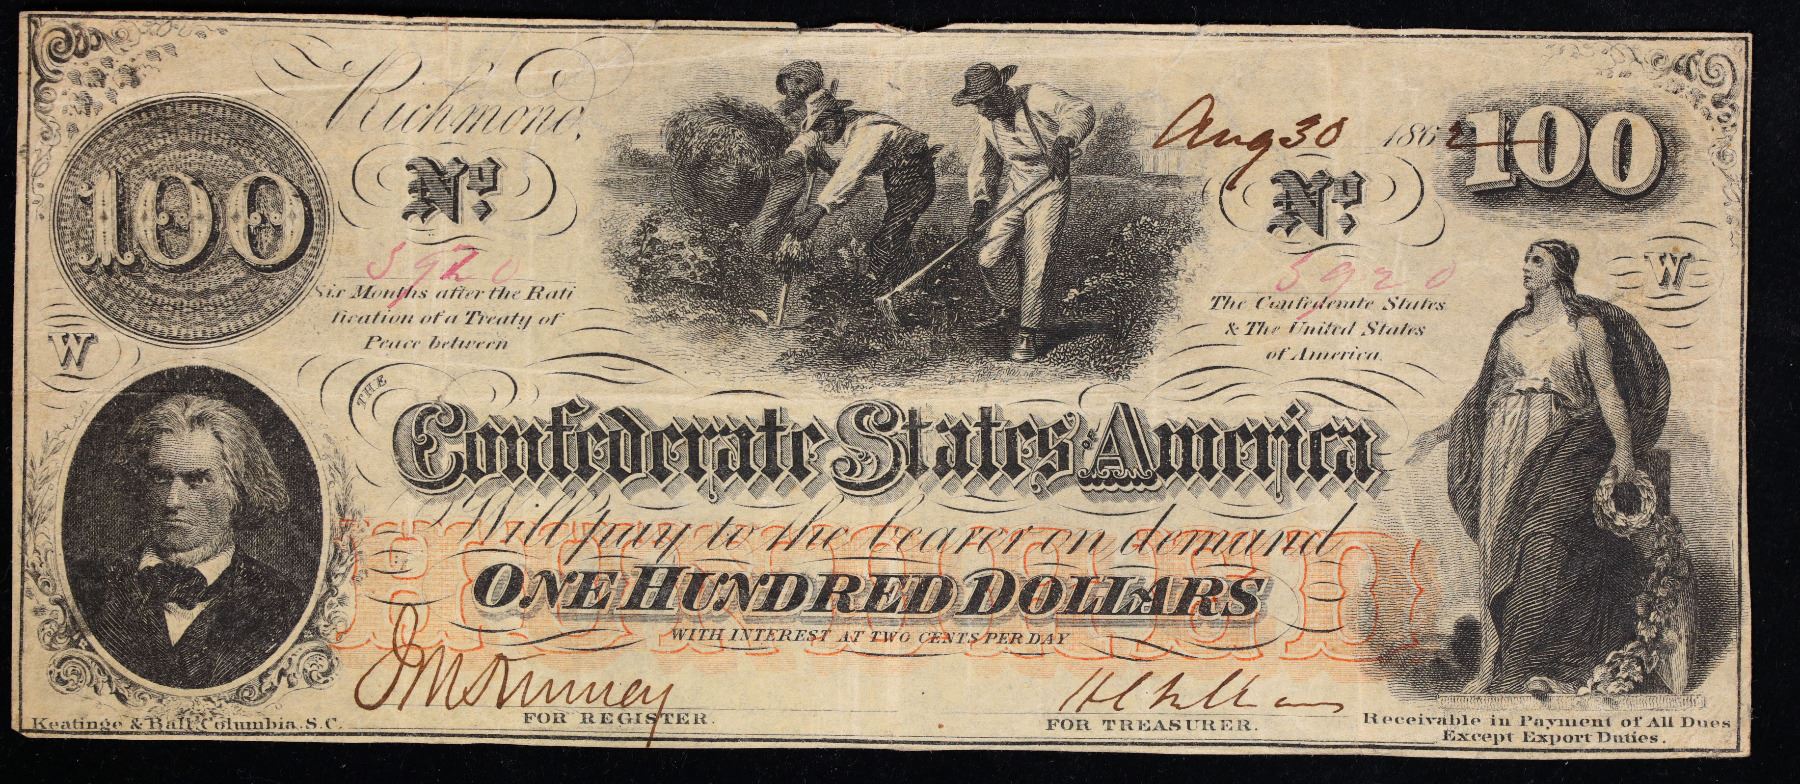 Richmond,
Aug 30 1862
100
100
No.
No.
5920
5920
Six Months after the Rati
fication of a Treaty of
Peace between
The Confederate States
& The United States
of America.
W
W
THE
Confederate States of America
Will pay to the bearer on demand
HUNDRED
ONE HUNDRED DOLLARS
WITH INTEREST AT TWO CENTS PER DAY
FOR REGISTER.
FOR TREASURER.
Keatinge & Ball, Columbia, S.C.
Receivable in Payment of All Dues
Except Export Duties.